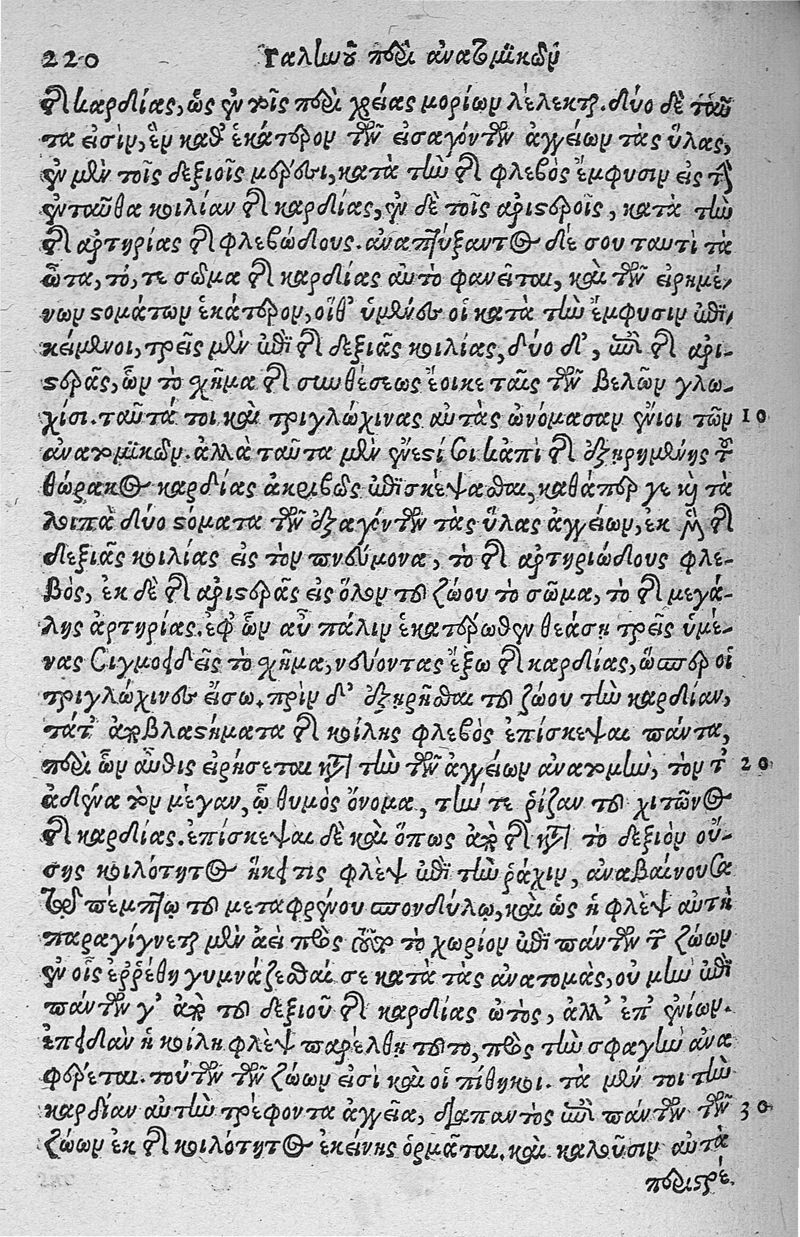 220 Γαλίωοῦ περὶ ἀνατομικῶν
τῆς καρδίας, ὡς ἐν τοῖς περὶ χρείας μορίων λέλεκται. δύο δὲ ταῦ
τα εἰσὶν, ἓν καθ' ἑκάτερον τῶν εἰσαγόντων ἀγγείων τὰς ὕλας,
ἐν μὲν τοῖς δεξιοῖς μέρεσι, κατὰ τὴν τῆς φλεβὸς ἔμφυσιν εἰς τὴν
ἐνταῦθα κοιλίαν τῆς καρδίας, ἐν δὲ τοῖς ἀριστεροῖς, κατὰ τὴν
τῆς ἀρτηρίας τῆς φλεβώδους. ἀναπτύξαντος δέ σου ταυτὶ τὰ
ὦτα, τό, τε σῶμα τῆς καρδίας αὐτὸ φανεῖται, καὶ τῶν εἰρημέ-
νων στομάτων ἑκάτερον, οἵθ' ὑμένες οἱ κατὰ τὴν ἔμφυσιν ἐπι-
κείμενοι, τρεῖς μὲν ἐπὶ τῆς δεξιᾶς κοιλίας, δύο δ', ἐπὶ τῆς ἀρι-
στερᾶς, ὧν τὸ σχῆμα τῆς συνθέσεως ἔοικε ταῖς τῶν βελῶν γλω-
χίσι. ταῦτά τοι καὶ τριγλώχινας αὐτὰς ὠνόμασαν ἔνιοι τῶν 10
ἀνατομικῶν. ἀλλὰ ταῦτα μὲν ἔνεστί σοι κἀπὶ τῆς ἐξῃρημένης τοῦ
θώρακος καρδίας ἀκριβῶς ἐπισκέψασθαι, καθάπερ γε καὶ τὰ
λοιπὰ δύο στόματα τῶν ἐξαγόντων τὰς ὕλας ἀγγείων, ἐκ μὲν τῆς
δεξιᾶς κοιλίας εἰς τὸν πνεύμονα, τὸ τῆς ἀρτηριώδους φλε-
βὸς, ἐκ δὲ τῆς ἀριστερᾶς εἰς ὅλον τοῦ ζώου τὸ σῶμα, τὸ τῆς μεγά-
λης ἀρτηρίας. ἐφ' ὧν αὖ πάλιν ἑκατέρωθεν θεάσῃ τρεῖς ὑμέ-
νας σιγμοειδεῖς τὸ σχῆμα, νεύοντας ἔξω τῆς καρδίας, ὥσπερ οἱ
τριγλώχινες εἴσω. πρὶν δ' ἐξῃρῆσθαι τοῦ ζώου τὴν καρδίαν,
τά τ' ἀποβλαστήματα τῆς κοίλης φλεβὸς ἐπίσκεψαι πάντα,
περὶ ὧν αὖθις εἰρήσεται κατὰ τὴν τῶν ἀγγείων ἀνατομὴν, τόν τ' 20
ἀδένα τὸν μέγαν, ᾧ θυμὸς ὄνομα, τήν τε ῥίζαν τοῦ χιτῶνος
τῆς καρδίας. ἐπίσκεψαι δὲ καὶ ὅπως ἀπὸ τῆς κατὰ τὸ δεξιὸν οὔ-
σης κοιλότητος ἥκει τις φλὲψ ἐπὶ τὴν ῥάχιν, ἀναβαίνουσα
τῷ πέμπτῳ τοῦ μεταφρένου σπονδύλῳ, καὶ ὡς ἡ φλὲψ αὐτὴ
παραγίγνεται μὲν ἀεὶ πρὸς τοῦτο τὸ χωρίον ἐπὶ πάντων τῶν ζώων
ἐν οἷς ἐρρέθη γυμνάζεσθαί σε κατὰ τὰς ἀνατομὰς, οὐ μὴν ἐπὶ
πάντων γ' ἀπὸ τοῦ δεξιοῦ τῆς καρδίας ὠτὸς, ἀλλ' ἐπ' ἐνίων.
ἐπειδὰν ἡ κοίλη φλὲψ παρέλθῃ τοῦτο, πρὸς τὴν σφαγὴν ἀνα
φέρεται. τούτων τῶν ζώων εἰσὶ καὶ οἱ πίθηκοι. τὰ μέν τοι τὴν
καρδίαν αὐτὴν τρέφοντα ἀγγεῖα, διαπαντὸς ἐπὶ πάντων τῶν 30
ζώων ἐκ τῆς κοιλότητος ἐκείνης ὁρμᾶται. καὶ καλοῦσιν αὐτὰ
περιστρέ.